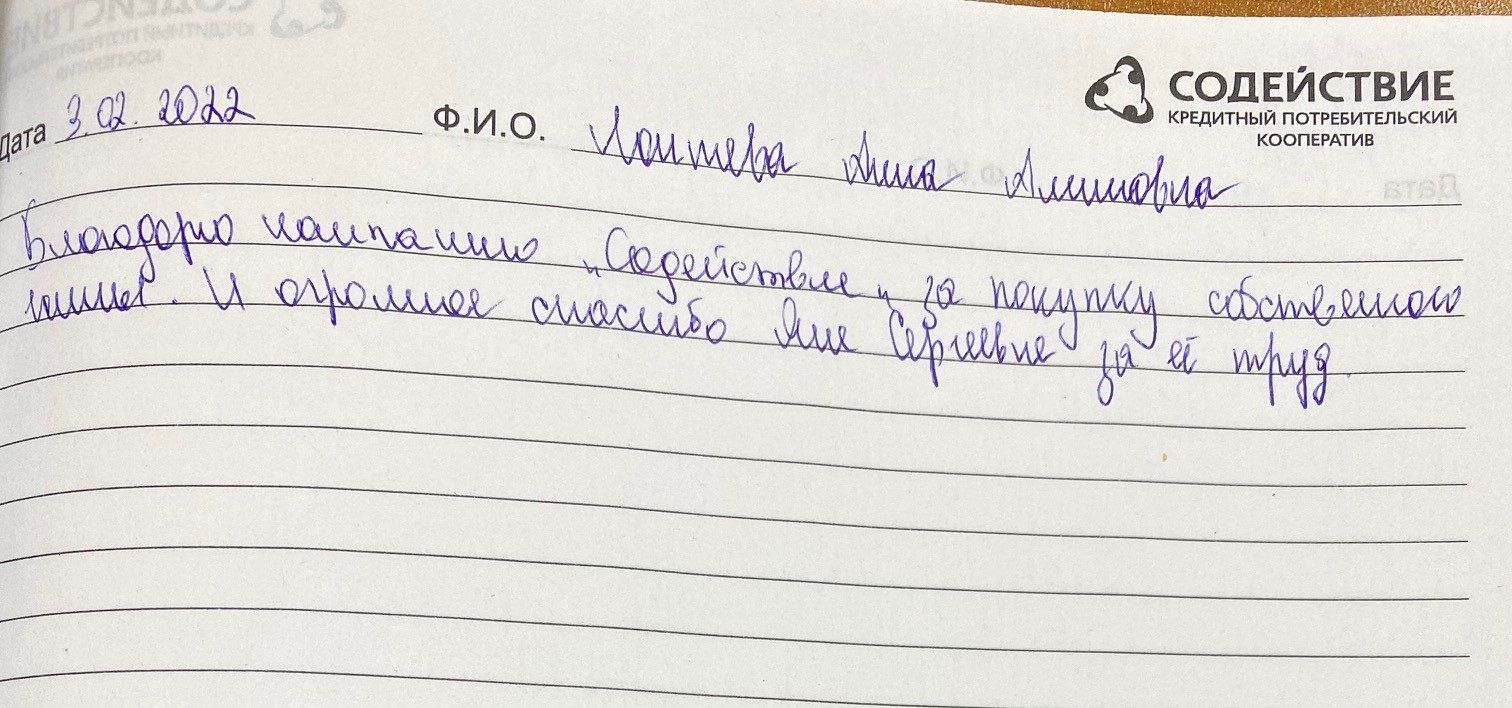 СОДЕЙСТВИЕ
КРЕДИТНЫЙ ПОТРЕБИТЕЛЬСКИЙ
КООПЕРАТИВ
Дата 3.02.2022 Ф.И.О. Анна
Благодарю компанию „Содействие" за покупку собственого
жилья. И огромное спасибо Яне Сергеевне за её труд.